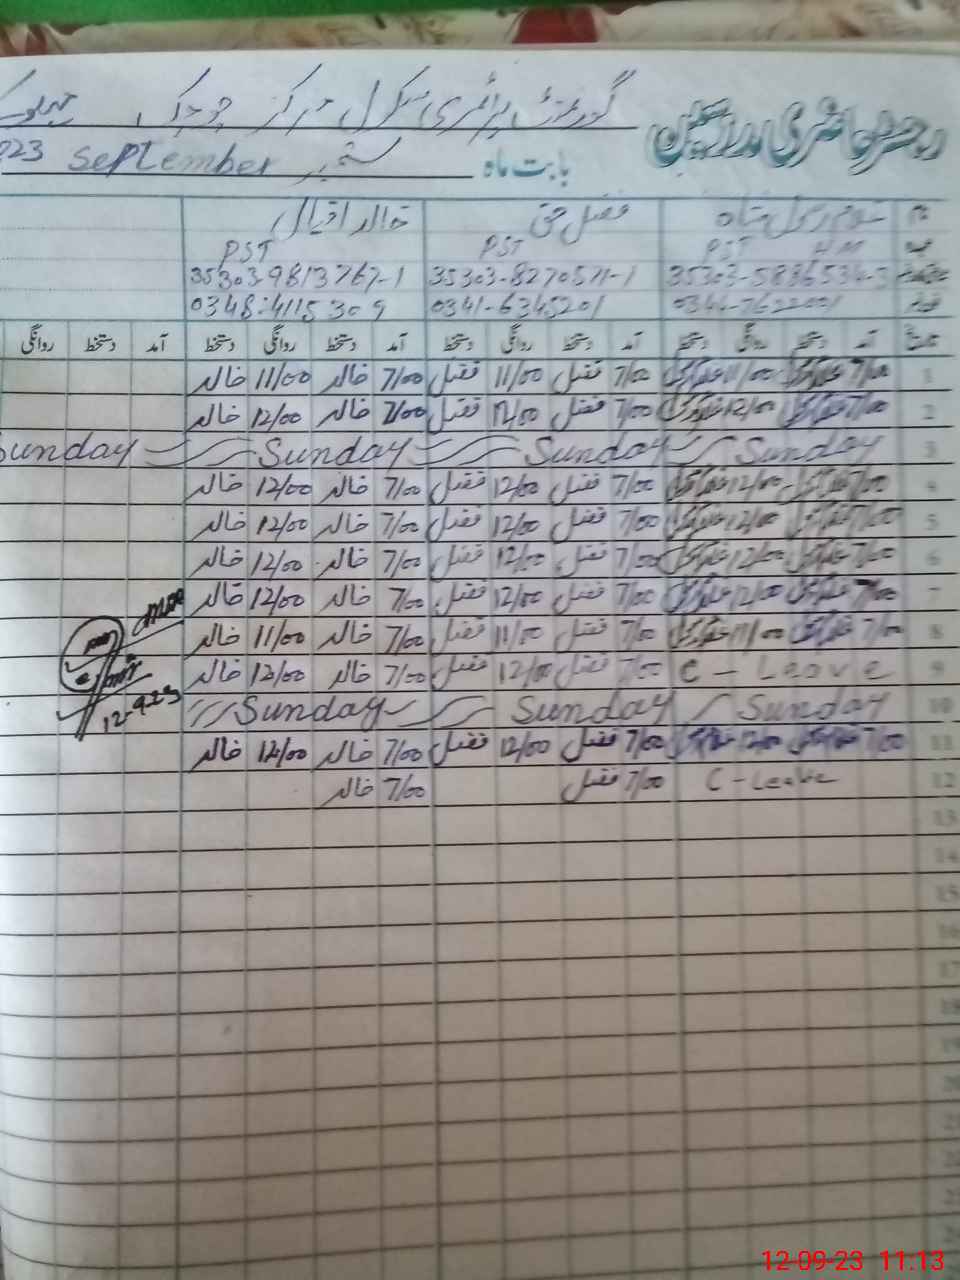 گورنمنٹ پرائمری سکول مرکز
رجسٹر حاضری مدرسین
بابت ماہ ستمبر September 023
نام فضل حق خالد اقبال
PST H M PST PST
35303-5886534-3 35303-8270571-1 35303-9813767-1
0341-6345201 0348-4115309
تاریخ آمد دستخط روانگی دستخط آمد دستخط روانگی دستخط آمد دستخط روانگی دستخط آمد دستخط روانگی
1 7/00 11/00 7/00 فضل 11/00 فضل 7/00 خالد 11/00 خالد
2 7/00 12/00 7/00 فضل 12/00 فضل 7/00 خالد 12/00 خالد
3 Sunday Sunday Sunday Sunday
4 7/00 12/00 7/00 فضل 12/00 فضل 7/00 خالد 12/00 خالد
5 7/00 12/00 7/00 فضل 12/00 فضل 7/00 خالد 12/00 خالد
6 7/00 12/00 7/00 فضل 12/00 فضل 7/00 خالد 12/00 خالد
7 7/00 12/00 7/00 فضل 12/00 فضل 7/00 خالد 12/00 خالد
8 7/00 11/00 7/00 فضل 11/00 فضل 7/00 خالد 11/00 خالد
9 C - Leave 7/00 فضل 12/00 فضل 7/00 خالد 12/00 خالد
10 Sunday Sunday Sunday
12-9-23
11 7/00 12/00 7/00 فضل 12/00 فضل 7/00 خالد 12/00 خالد
12 C - Leave 7/00 فضل 7/00 خالد
13
14
15
16
17
18
19
20
21
22
23
24
12-09-23 11:13